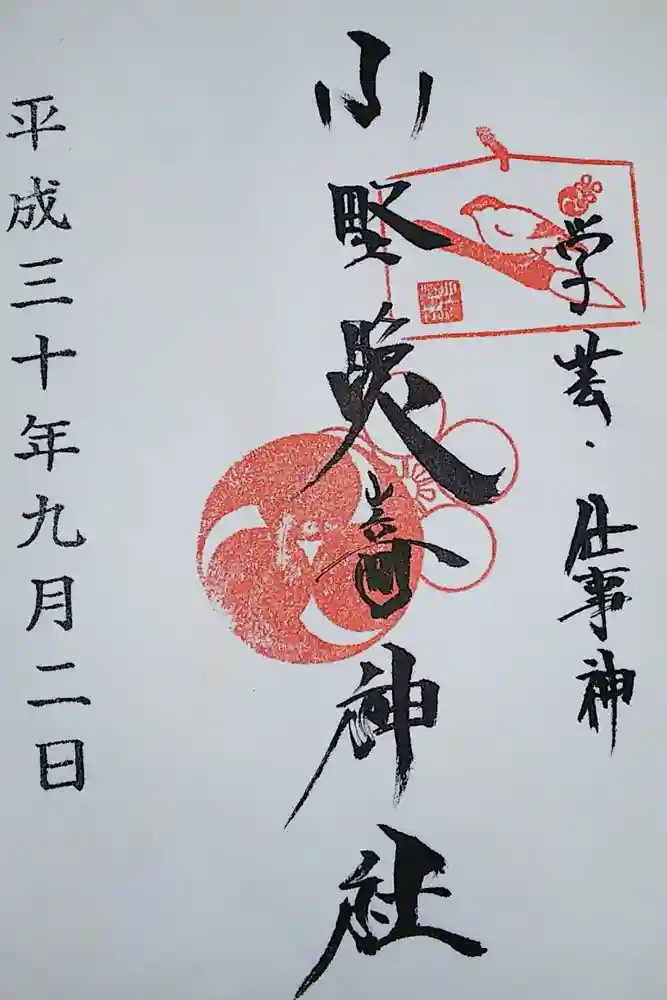 学芸・仕事神
小野照崎神社
平成三十年九月二日